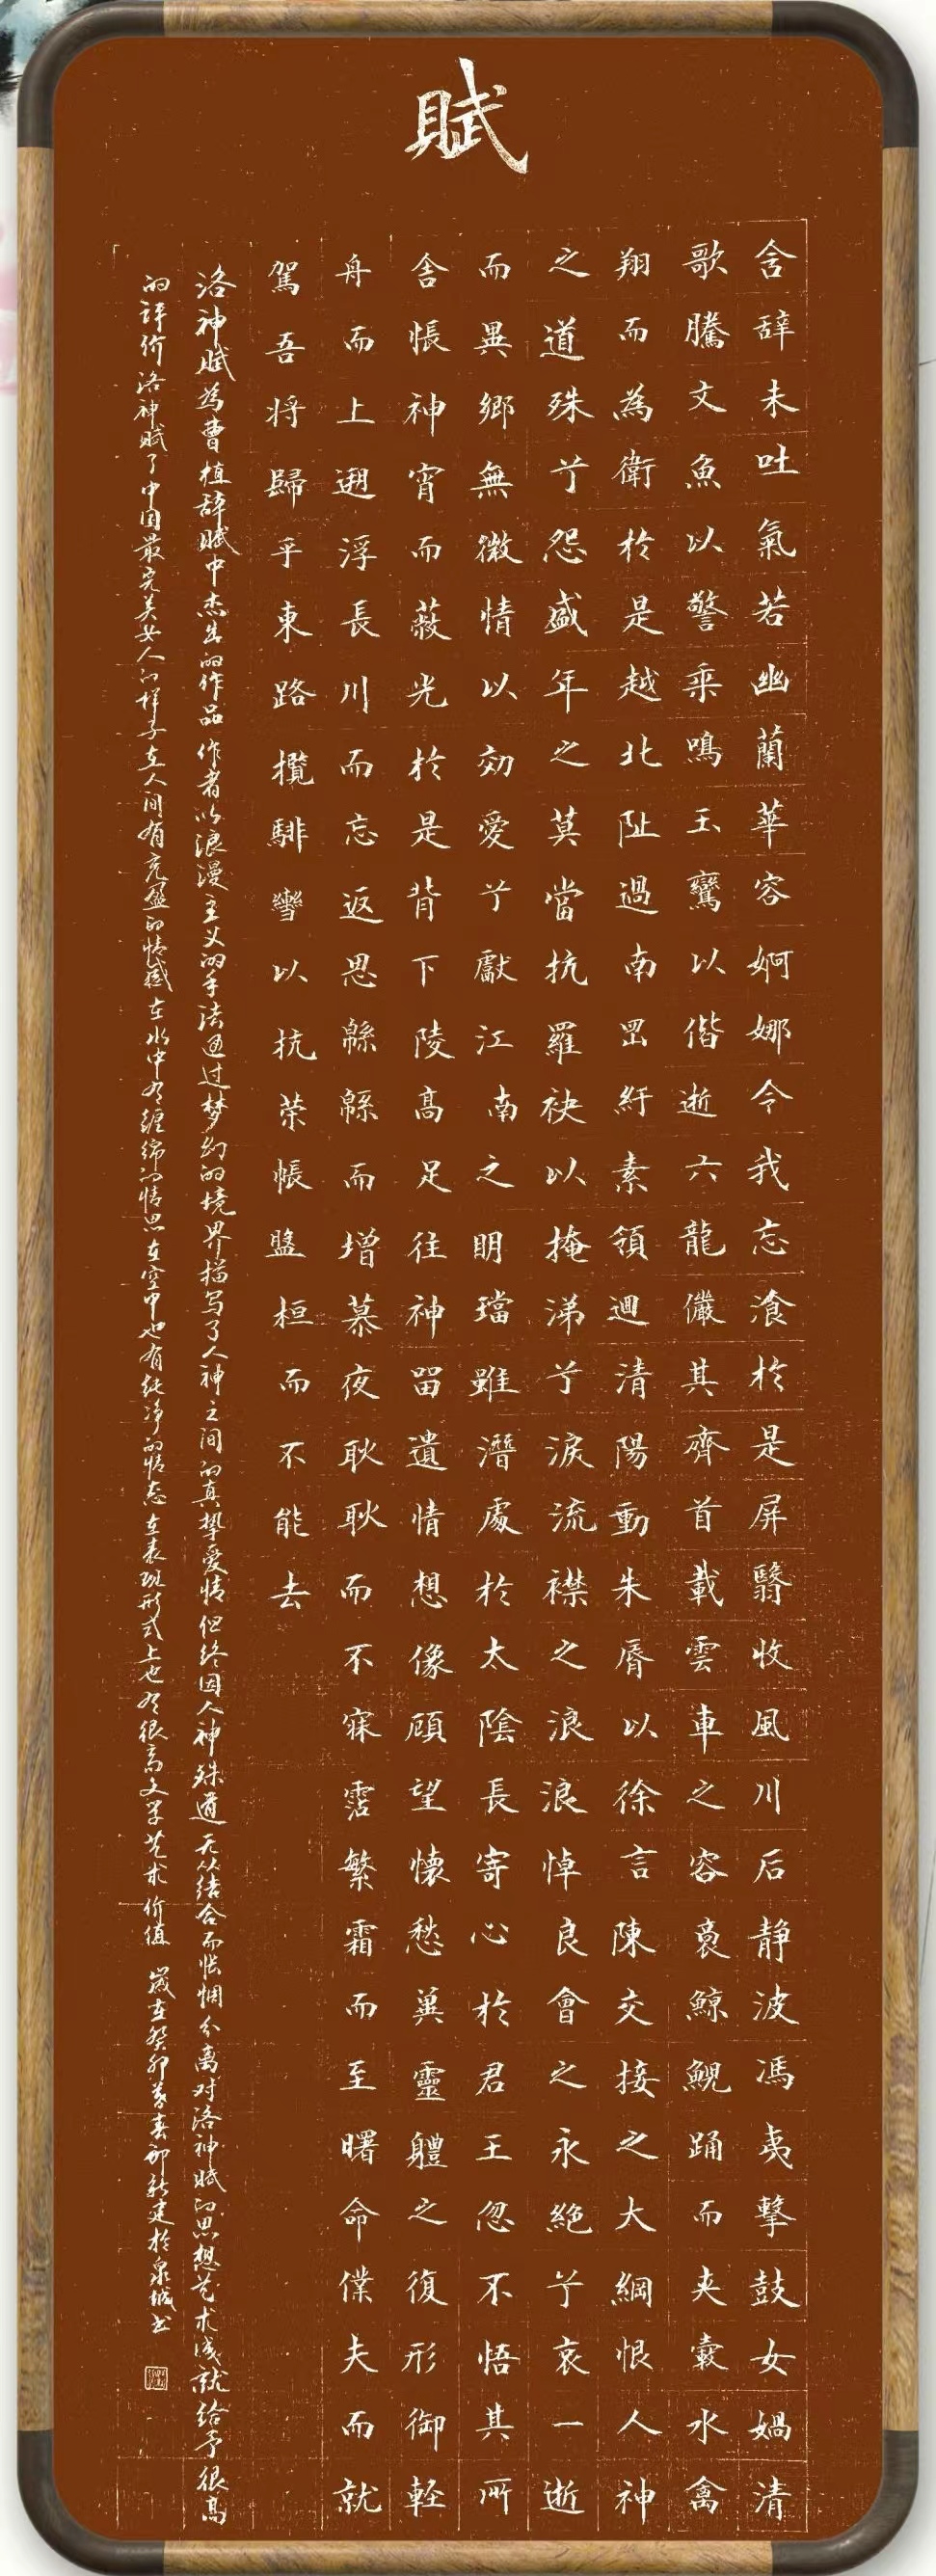 賦
含辭未吐氣若幽蘭華容婀娜令我忘飡於是屏翳收風川后静波馮夷擊鼓女媧清
歌騰文魚以警乘鳴玉鸞以偕逝六龍儼其齊首載雲車之容裔鯨鯢踊而夹轂水禽
翔而為衛於是越北沚過南岡紆素領迴清陽動朱脣以徐言陳交接之大綱恨人神
之道殊兮怨盛年之莫當抗羅袂以掩涕兮淚流襟之浪浪悼良會之永絕兮哀一逝
而異鄉無微情以効愛兮獻江南之明璫雖潛處於太陰長寄心於君王忽不悟其所
舍悵神宵而蔽光於是背下陵高足往神留遺情想像顧望懷愁兾靈軆之復形御軽
舟而上遡浮長川而忘返思緜緜而增慕夜耿耿而不寐霑繁霜而至曙命僕夫而就
駕吾將歸乎東路攬騑轡以抗荣悵盤桓而不能去
洛神賦為曹植辞賦中杰出的作品作者以浪漫主义的手法通过梦幻的境界描写了人神之间的真挚爱情但终因人神殊道无从结合而怅惘分离对洛神賦的思想艺术成就给予很高
的评价洛神賦了中国最完美女人的样子在人间有充盈的情感在水中有缠绵的情思在空中也有纯净的情态在表现形式上也有很高文学艺术价值 歲在癸卯孟春新建於泉城书